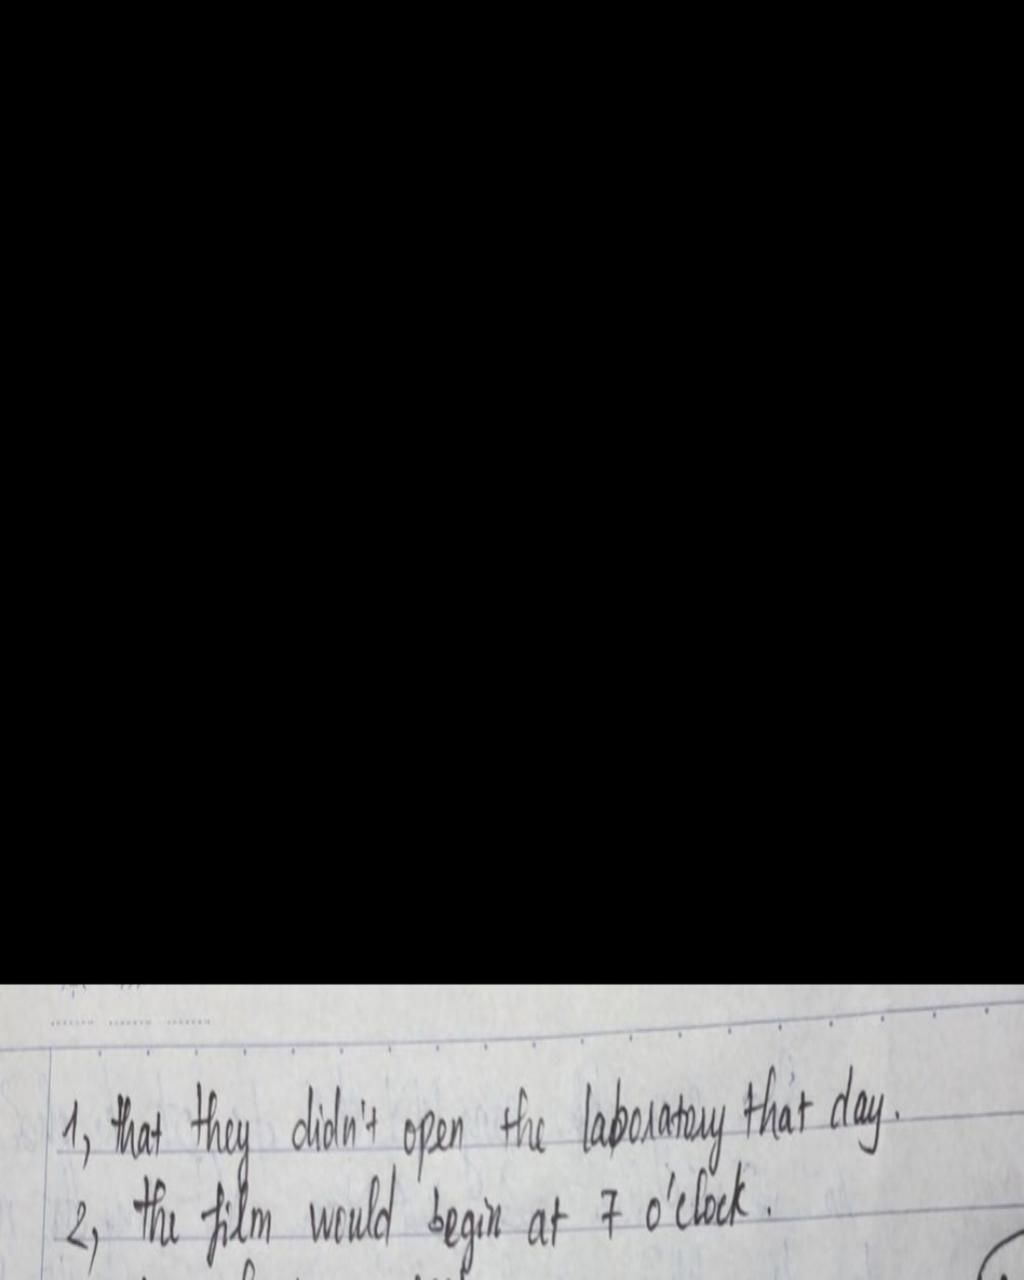 1, that they didn't open the laboratory that day.
2, the film would begin at 7 o'clock.